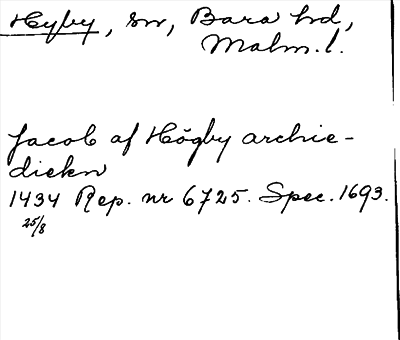 Hyby, sn, Bara hd,
Malm. l.
Jacob af Högby archie-
diekn
1434 Rep. nr 6725. Spec. 1693.
25/8